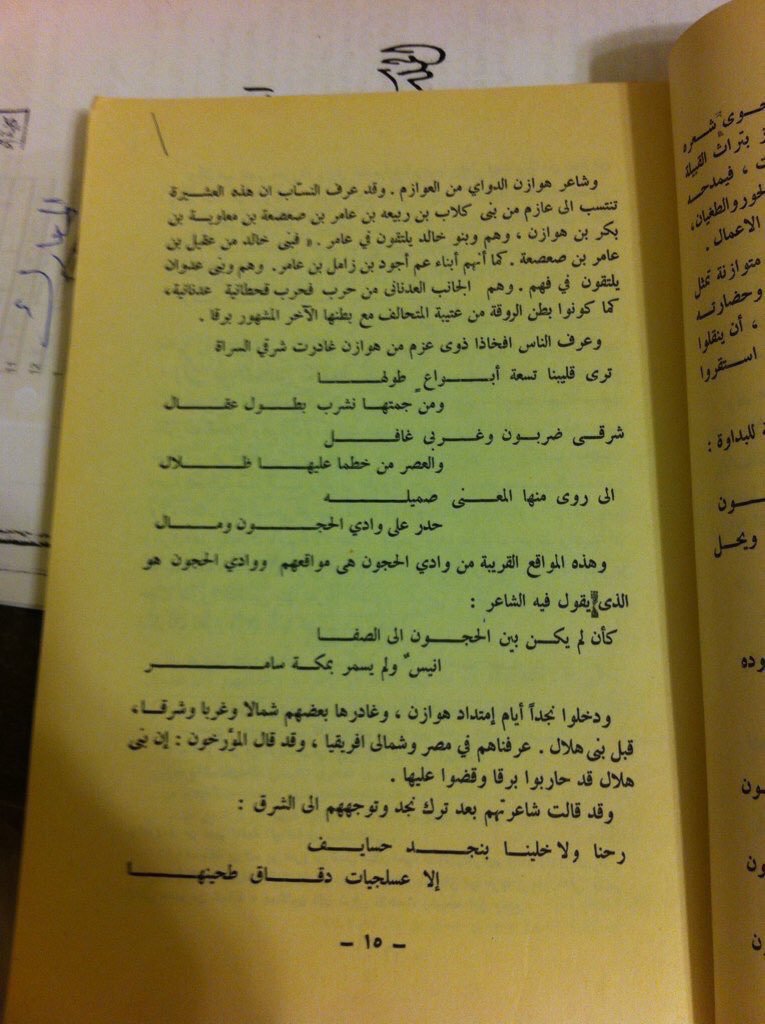 وشاعر هوازن الدواي من العوازم . وقد عرف النسّاب ان هذه العشيرة
تنتسب الى عازم من بنى كلاب بن ربيعه بن عامر بن صعصعة بن معاوية بن
بكر بن هوازن ، وهم وبنو خالد يلتقون في عامر . « فبنى خالد من عقيل بن
عامر بن صعصعة . كما أنهم أبناء عم أجود بن زامل بن عامر . وهم وبنى عدوان
يلتقون في فهم . وهم الجانب العدنانى من حرب فحرب قحطانية عدنانية،
كما كونوا بطن الروقة من عتيبة المتحالف مع بطنها الآخر المشهور برقا .
وعرف الناس افخاذا ذوى عزم من هوازن غادرت شرقي السراة
ترى قليبنا تسعة أبـــواع طولهـــا
ومن جمتهـا نشرب بطـول عقـــال
شرقـى ضربـون وغـربى غافـــل
والعصر من خطما عليهـــا ظـــلال
الى روى منها المعـنى صميلـــه
حدر على وادي الحجـــون ومـــال
وهذه المواقع القريبة من وادي الحجون هى مواقعهم ووادي الحجون هو
الذى يقول فيه الشاعر :
كأن لم يكـن بين الحجـــون الى الصفـــا
انيسٌ ولم يسمر بمكـة سامـــر
ودخلوا نجداً أيام إمتداد هوازن ، وغادرها بعضهم شمالا وغربا وشرقـا،
قبل بنى هلال . عرفناهم في مصر وشمالى افريقيا ، وقد قال المؤرخون : إن بنى
هلال قد حاربوا برقا وقضوا عليها .
وقد قالت شاعرتهم بعد ترك نجد وتوجههم الى الشرق :
رحنا ولا خلينـا بنجـــد حسايـف
إلا عسلجيات دقـــاق طحينهـــا
– ١٥ –
حوى شعره
بتراث القبيلة
، فيمدحـه
الجور والطغيان،
الاعمال .
متوازنة تمثل
وحضارتـه
، أن ينقلوا
استقروا
للبداوة :
ويحل